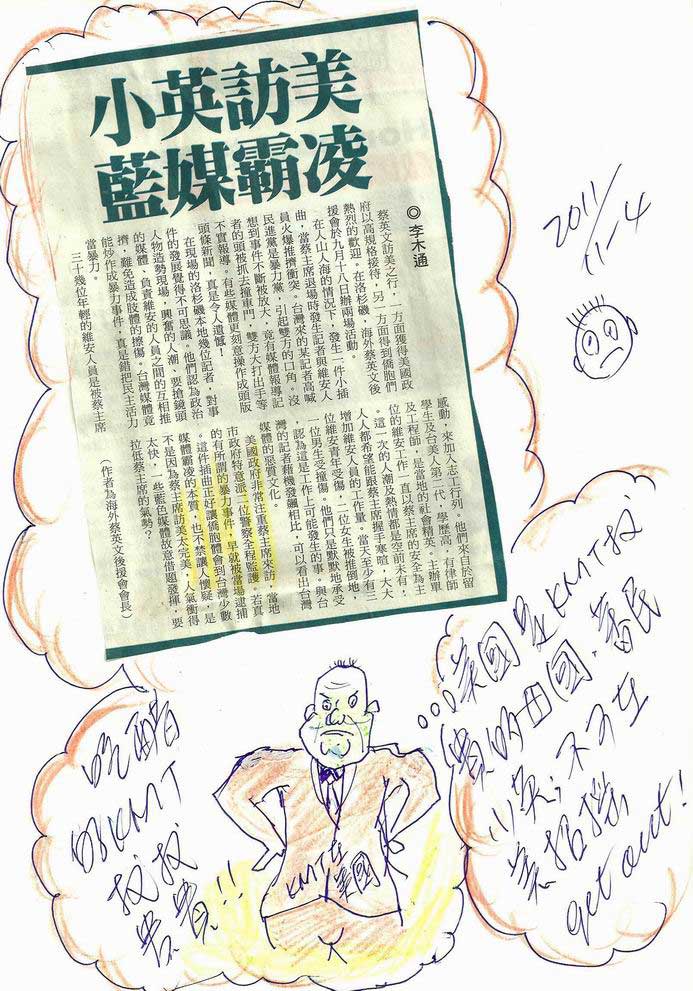 小英訪美
藍媒霸凌
◎李木通
蔡英文訪美之行，一方面獲得美國政
府以高規格接待，另一方面得到僑胞們
熱烈的歡迎。在洛杉磯，海外蔡英文後
援會於九月十八日辦兩場活動
在人山人海的情況下，發生一件小插
曲，當蔡主席退場時發生記者與維安人
員火爆推擠衝突。台灣來的某記者高喊
民進黨是暴力黨，引起雙方的口角。沒
想到事件不斷被放大，竟有媒體報導記
者的頭被抓去撞車門，雙方大打出手等
不實報導。有些媒體更刻意操作成頭版
頭條新聞，真是令人遺憾！
在現場的洛杉磯本地幾位記者，對事
件的發展覺得不可思議。他們認為政治
人物造勢現場，興奮的人潮、要搶鏡頭
的媒體、負責維安的人員之間的互相推
擠，難免造成肢體的擦傷。台灣媒體竟
能炒作成暴力事件，真是錯把民主活力
當暴力。
三十幾位年輕的維安人員是被蔡主席
感動，來加入志工行列。他們來自於留
學生及台美人第二代，學歷高，有律師
及工程師，是當地的社會精英。主辦單
位的維安工作一直以蔡主席的安全為主
。這一次的人潮及熱情都是空前未有，
人人都希望能跟蔡主席握手寒暄，大大
增加維安人員的工作量。當天至少有三
位維安青年受傷，二位女生被推倒地，
一位男生受撞傷。他們只是默默地承受
，認為這是工作上可能發生的事。與台
灣的記者藉機發飆相比，可以看出台灣
媒體的惡質文化。
美國政府非常注重蔡主席來訪，當地
市政府特意派二位警察全程監護，若真
的有所謂的暴力事件，早就被當場逮捕
。這件插曲正好讓僑胞體會到台灣少數
媒體霸凌的本質，也不禁讓人懷疑，是
不是因為蔡主席訪美太完美，人氣衝得
太快，一些藍色媒體故意借題發揮，要
拉低蔡主席的氣勢？
（作者為海外蔡英文後援會會長）
2011
11-4
美國是KMT
的母國
小英；不可在
美招搖
get out！
吃醋
的KMT
！！
KMT在
美國